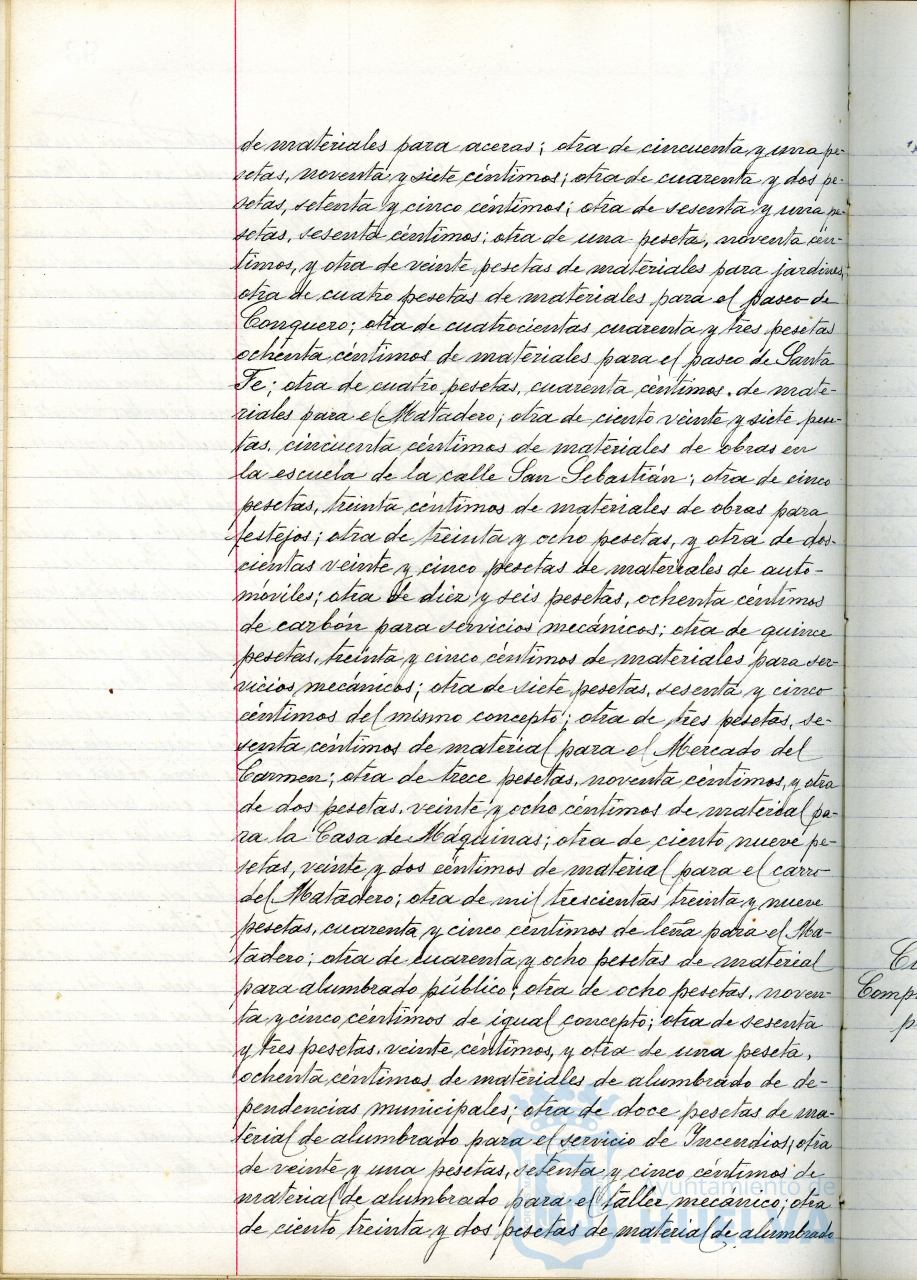 de materiales para aceras; otra de cincuenta y una pe-
setas, noventa y siete céntimos; otra de cuarenta y dos pe-
setas, setenta y cinco céntimos; otra de sesenta y una pe-
setas, sesenta céntimos; otra de una peseta, noventa cén-
timos, y otra de veinte pesetas de materiales para jardines;
otra de cuatro pesetas de materiales para el paseo de
Conquero; otra de cuatrocientas cuarenta y tres pesetas
ochenta céntimos de materiales para el paseo de Santa
Fe; otra de cuatro pesetas, cuarenta céntimos, de mate-
riales para el Matadero; otra de ciento veinte y siete pese-
tas, cincuenta céntimos de materiales de obras en
la escuela de la calle San Sebastián; otra de cinco
pesetas, treinta céntimos de materiales de obras para
festejos; otra de treinta y ocho pesetas, y otra de dos-
cientas veinte y cinco pesetas de materiales de auto-
móviles; otra de diez y seis pesetas, ochenta céntimos
de carbón para servicios mecánicos; otra de quince
pesetas, treinta y cinco céntimos de materiales para ser-
vicios mecánicos; otra de siete pesetas, sesenta y cinco
céntimos del mismo concepto; otra de tres pesetas, se-
senta céntimos de material para el Mercado del
Carmen; otra de trece pesetas, noventa céntimos, y otra
de dos pesetas, veinte y ocho céntimos de material pa-
ra la Casa de Máquinas; otra de ciento nueve pe-
setas, veinte y dos céntimos de material para el carro
del Matadero; otra de mil trescientas treinta y nueve
pesetas, cuarenta y cinco céntimos de leña para el Ma-
tadero; otra de cuarenta y ocho pesetas de material
para alumbrado público; otra de ocho pesetas, noven-
ta y cinco céntimos de igual concepto; otra de sesenta
y tres pesetas, veinte céntimos, y otra de una peseta,
ochenta céntimos de materiales de alumbrado de de-
pendencias municipales; otra de doce pesetas de ma-
terial de alumbrado para el servicio de Incendios; otra
de veinte y una pesetas, setenta y cinco céntimos de
material de alumbrado para el taller mecánico; otra
de ciento treinta y dos pesetas de material de alumbrado
Comp
Ayuntamiento de
HUELVA